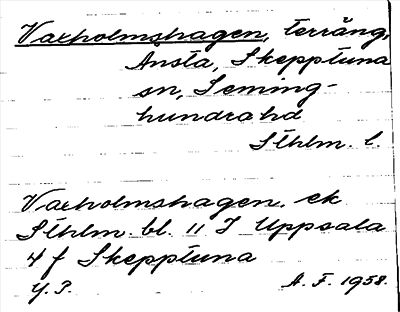 Vaxholmshagen, terräng,
Ånsta, Skepptuna
sn, Seming-
hundra hd
Sthlm. l.
Vaxholmshagen. ek
Sthlm. bl. 11 I Uppsala
4 f Skepptuna
Y. P. A. F. 1958.